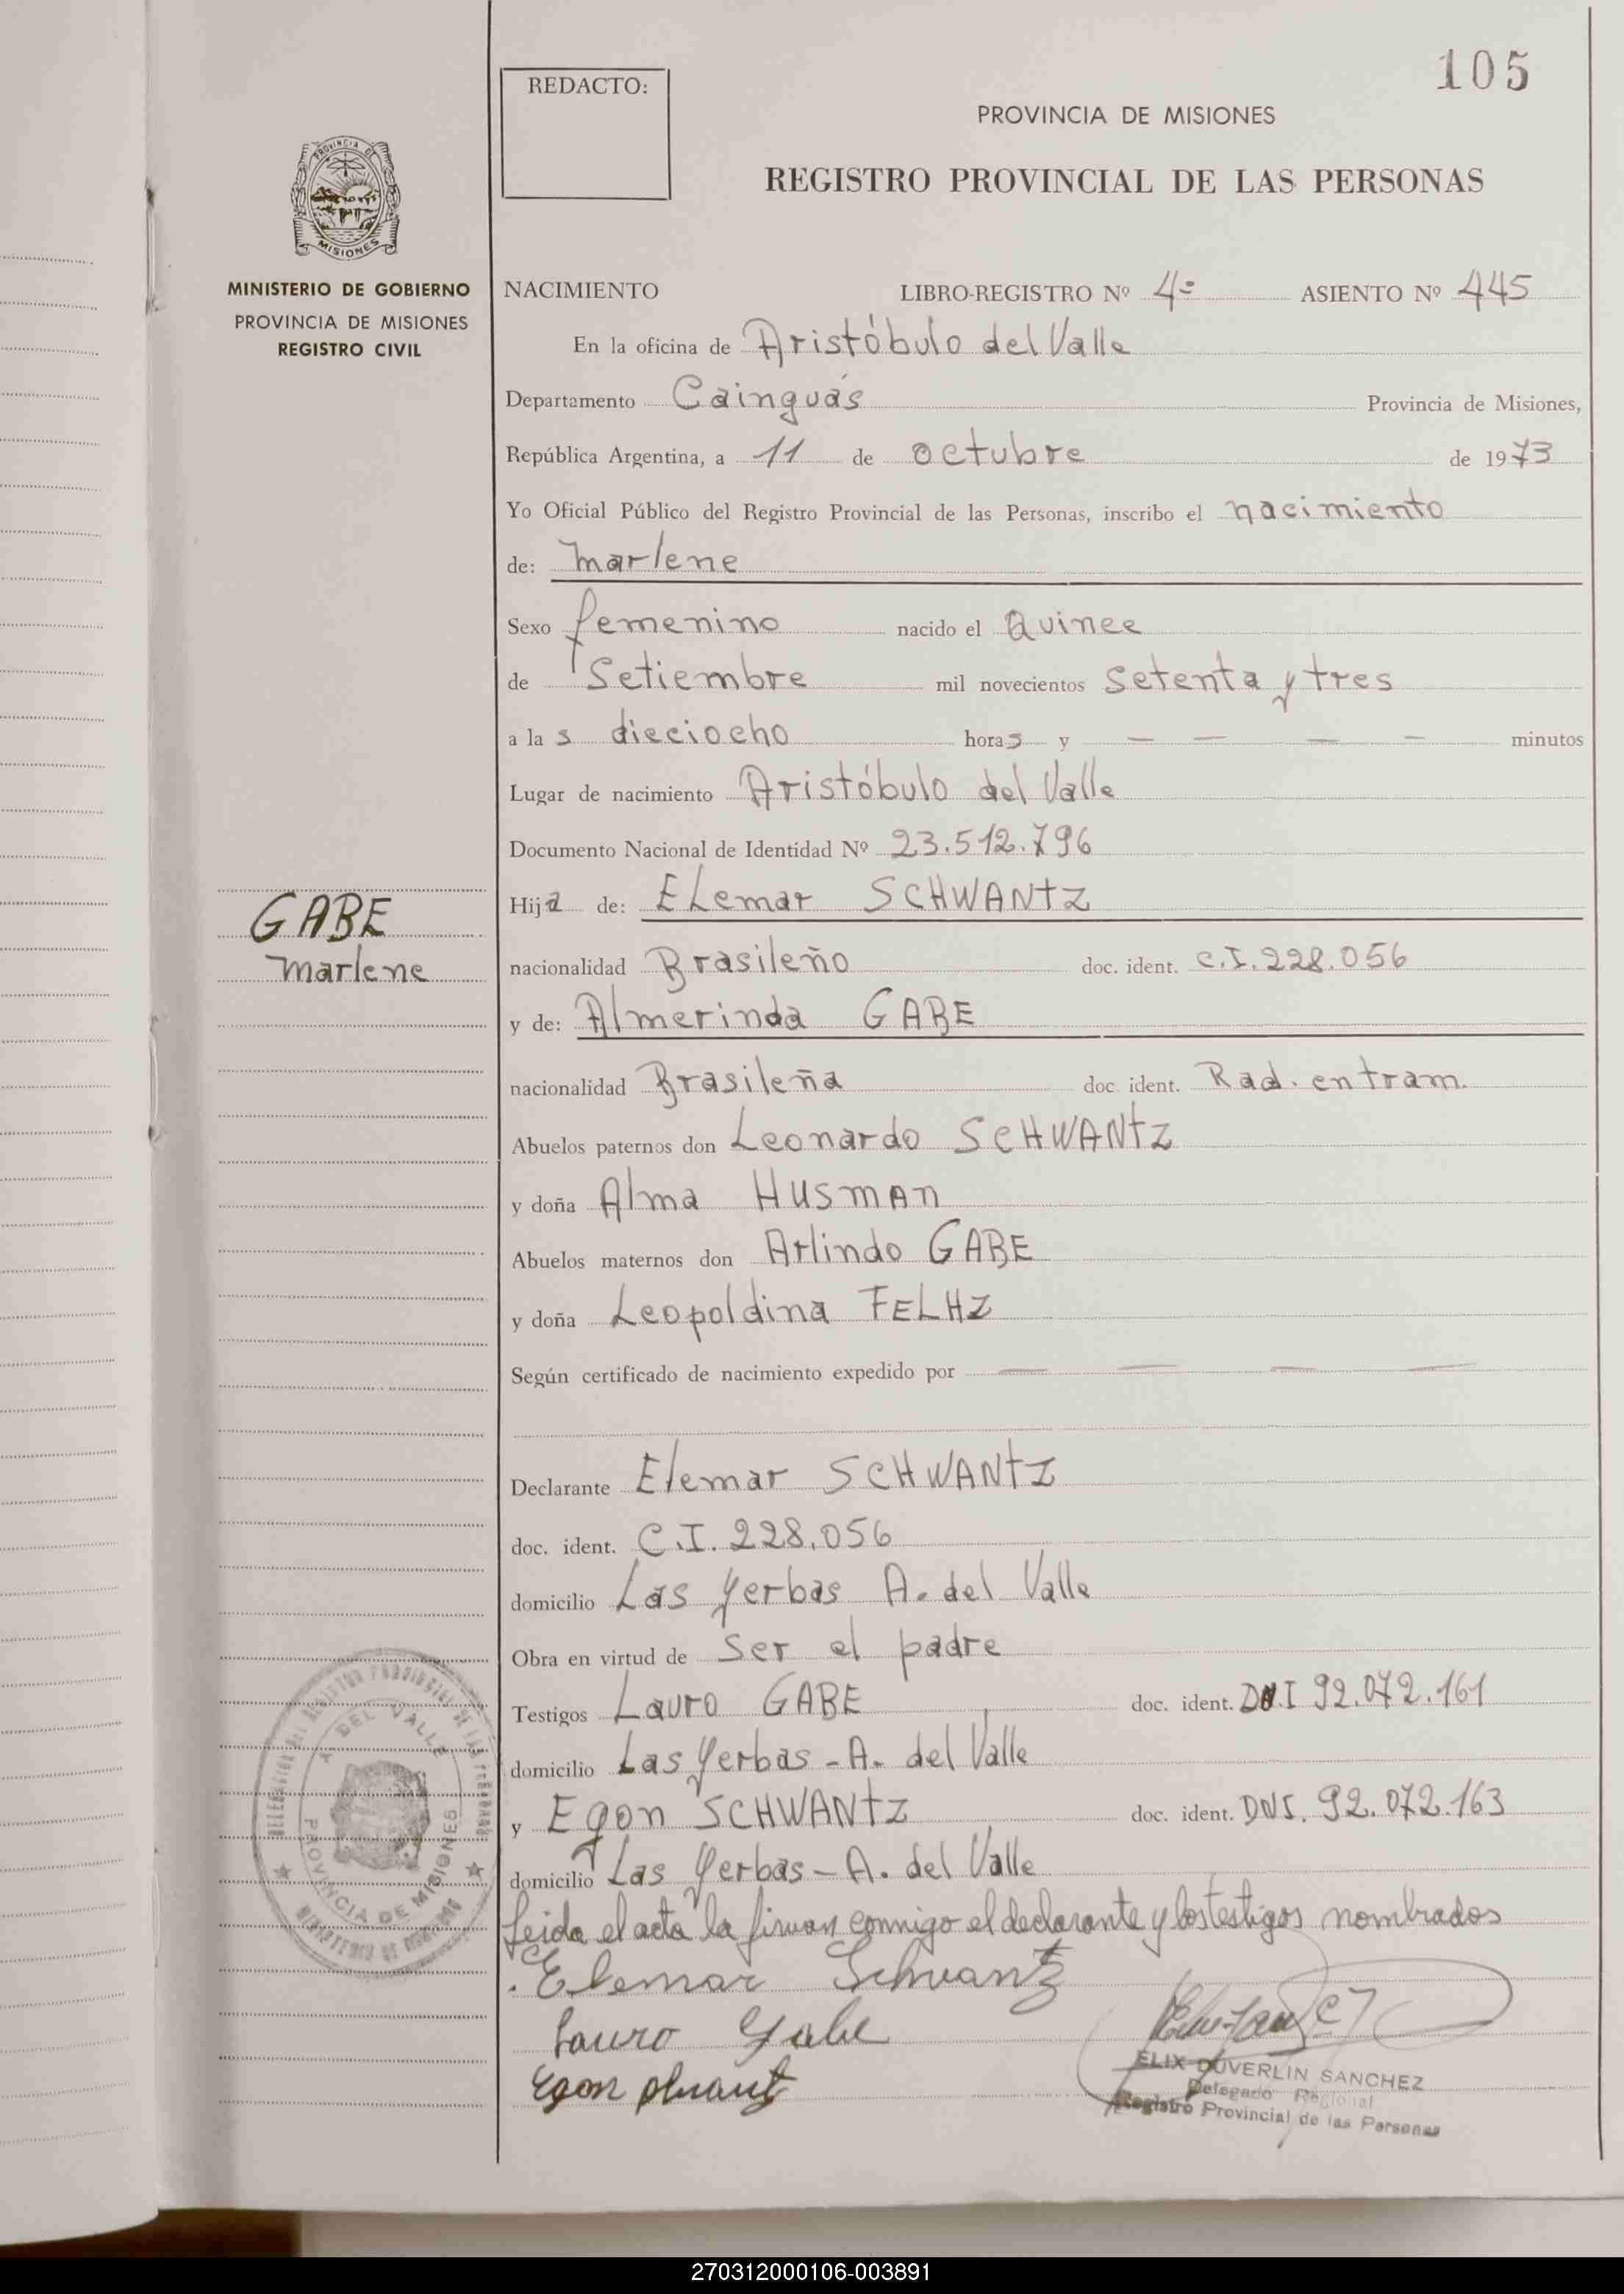 105
REDACTO:
PROVINCIA DE MISIONES
REGISTRO PROVINCIAL DE LAS PERSONAS
PROVINCIA DE
MISIONES
MINISTERIO DE GOBIERNO
PROVINCIA DE MISIONES
REGISTRO CIVIL
NACIMIENTO LIBRO-REGISTRO Nº 4º ASIENTO Nº 445
En la oficina de Aristóbulo del Valle
Departamento Cainguás Provincia de Misiones,
República Argentina, a 11 de octubre de 1973
Yo Oficial Público del Registro Provincial de las Personas, inscribo el nacimiento
de: Marlene
Sexo femenino nacido el Quince
de Setiembre mil novecientos setenta y tres
a las dieciocho horas y — — — — minutos
Lugar de nacimiento Aristóbulo del Valle
Documento Nacional de Identidad Nº 23.512.796
GABE
Marlene
Hija de: ELemar SCHWANTZ
nacionalidad Brasileño doc. ident. C.I. 228.056
y de: Almerinda GABE
nacionalidad Brasileña doc. ident. Rad. en tram.
Abuelos paternos don Leonardo SCHWANTZ
y doña Alma HUSMAN
Abuelos maternos don Arlindo GABE
y doña Leopoldina FELHZ
Según certificado de nacimiento expedido por — — — —
Declarante Elemar SCHWANTZ
doc. ident. C.I. 228.056
domicilio Las Yerbas A. del Valle
Obra en virtud de ser el padre
Testigos Lauro GABE doc. ident. DNI 92.072.161
domicilio Las Yerbas - A. del Valle
y Egon SCHWANTZ doc. ident. DNI. 92.072.163
domicilio Las Yerbas - A. del Valle
Leida el acta la firman conmigo el declarante y los testigos nombrados
Elemar Schwantz
Lauro Gabe
Egon
ELIX DUVERLIN SANCHEZ
Delegado Regional
Registro Provincial de las Personas
A. DEL VALLE
PROVINCIA DE MISIONES
270312000106-003891